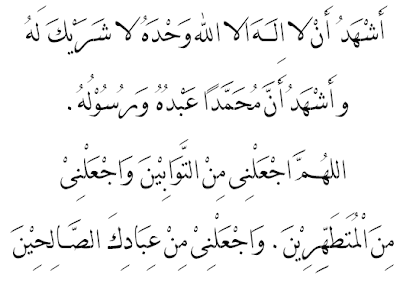 أَشْهَدُ أَنْ لا إِلَـهَ الا الله وَحْدَهُ لا شَرِيْكَ لَهُ
وأَشْهَدُ أَنَّ مُحَمَّدًا عَبْدُهُ وَرَسُوْلُهُ.
اللهُـمَّ اجْعَلْنِى مِنْ التَّوَابِيْنَ وَاجْعَلْنِىْ
مِنَ الْمُتَطَهِّرِيْنَ. وَاجْعَلْنِىْ مِنْ عِبَادِكَ الصَّـالِحِيْنَ